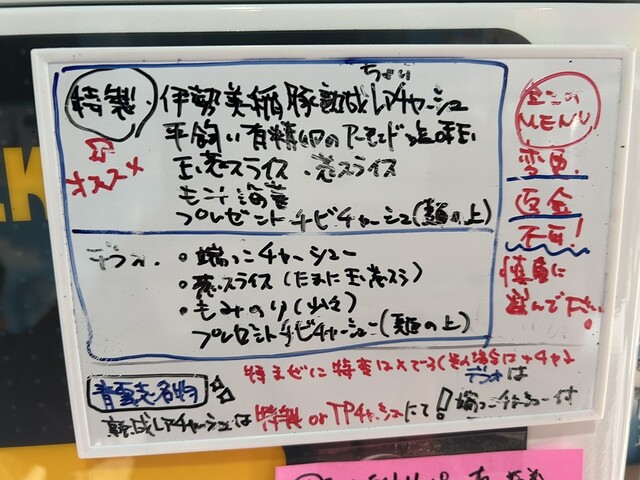 特製 伊勢美稲豚熟成ちょいレアチャーシュー
平飼い有精卵のアーモンド味玉
玉葱スライス・葱スライス
プレゼントチビチャーシュー(麺の上)
オススメ
デフォ
・端っこチャーシュー
・葱スライス(たまに玉葱スラ)
・もみのり(少々)
プレゼントチビチャーシュー(麺の上)
MENU
変更
返金
不可!
慎重に
選んで下さい!
特まぜに特製は
デフォは
熟成レアチャーシューは特製orTPチャーシューにて!
端っこチャーシュー付